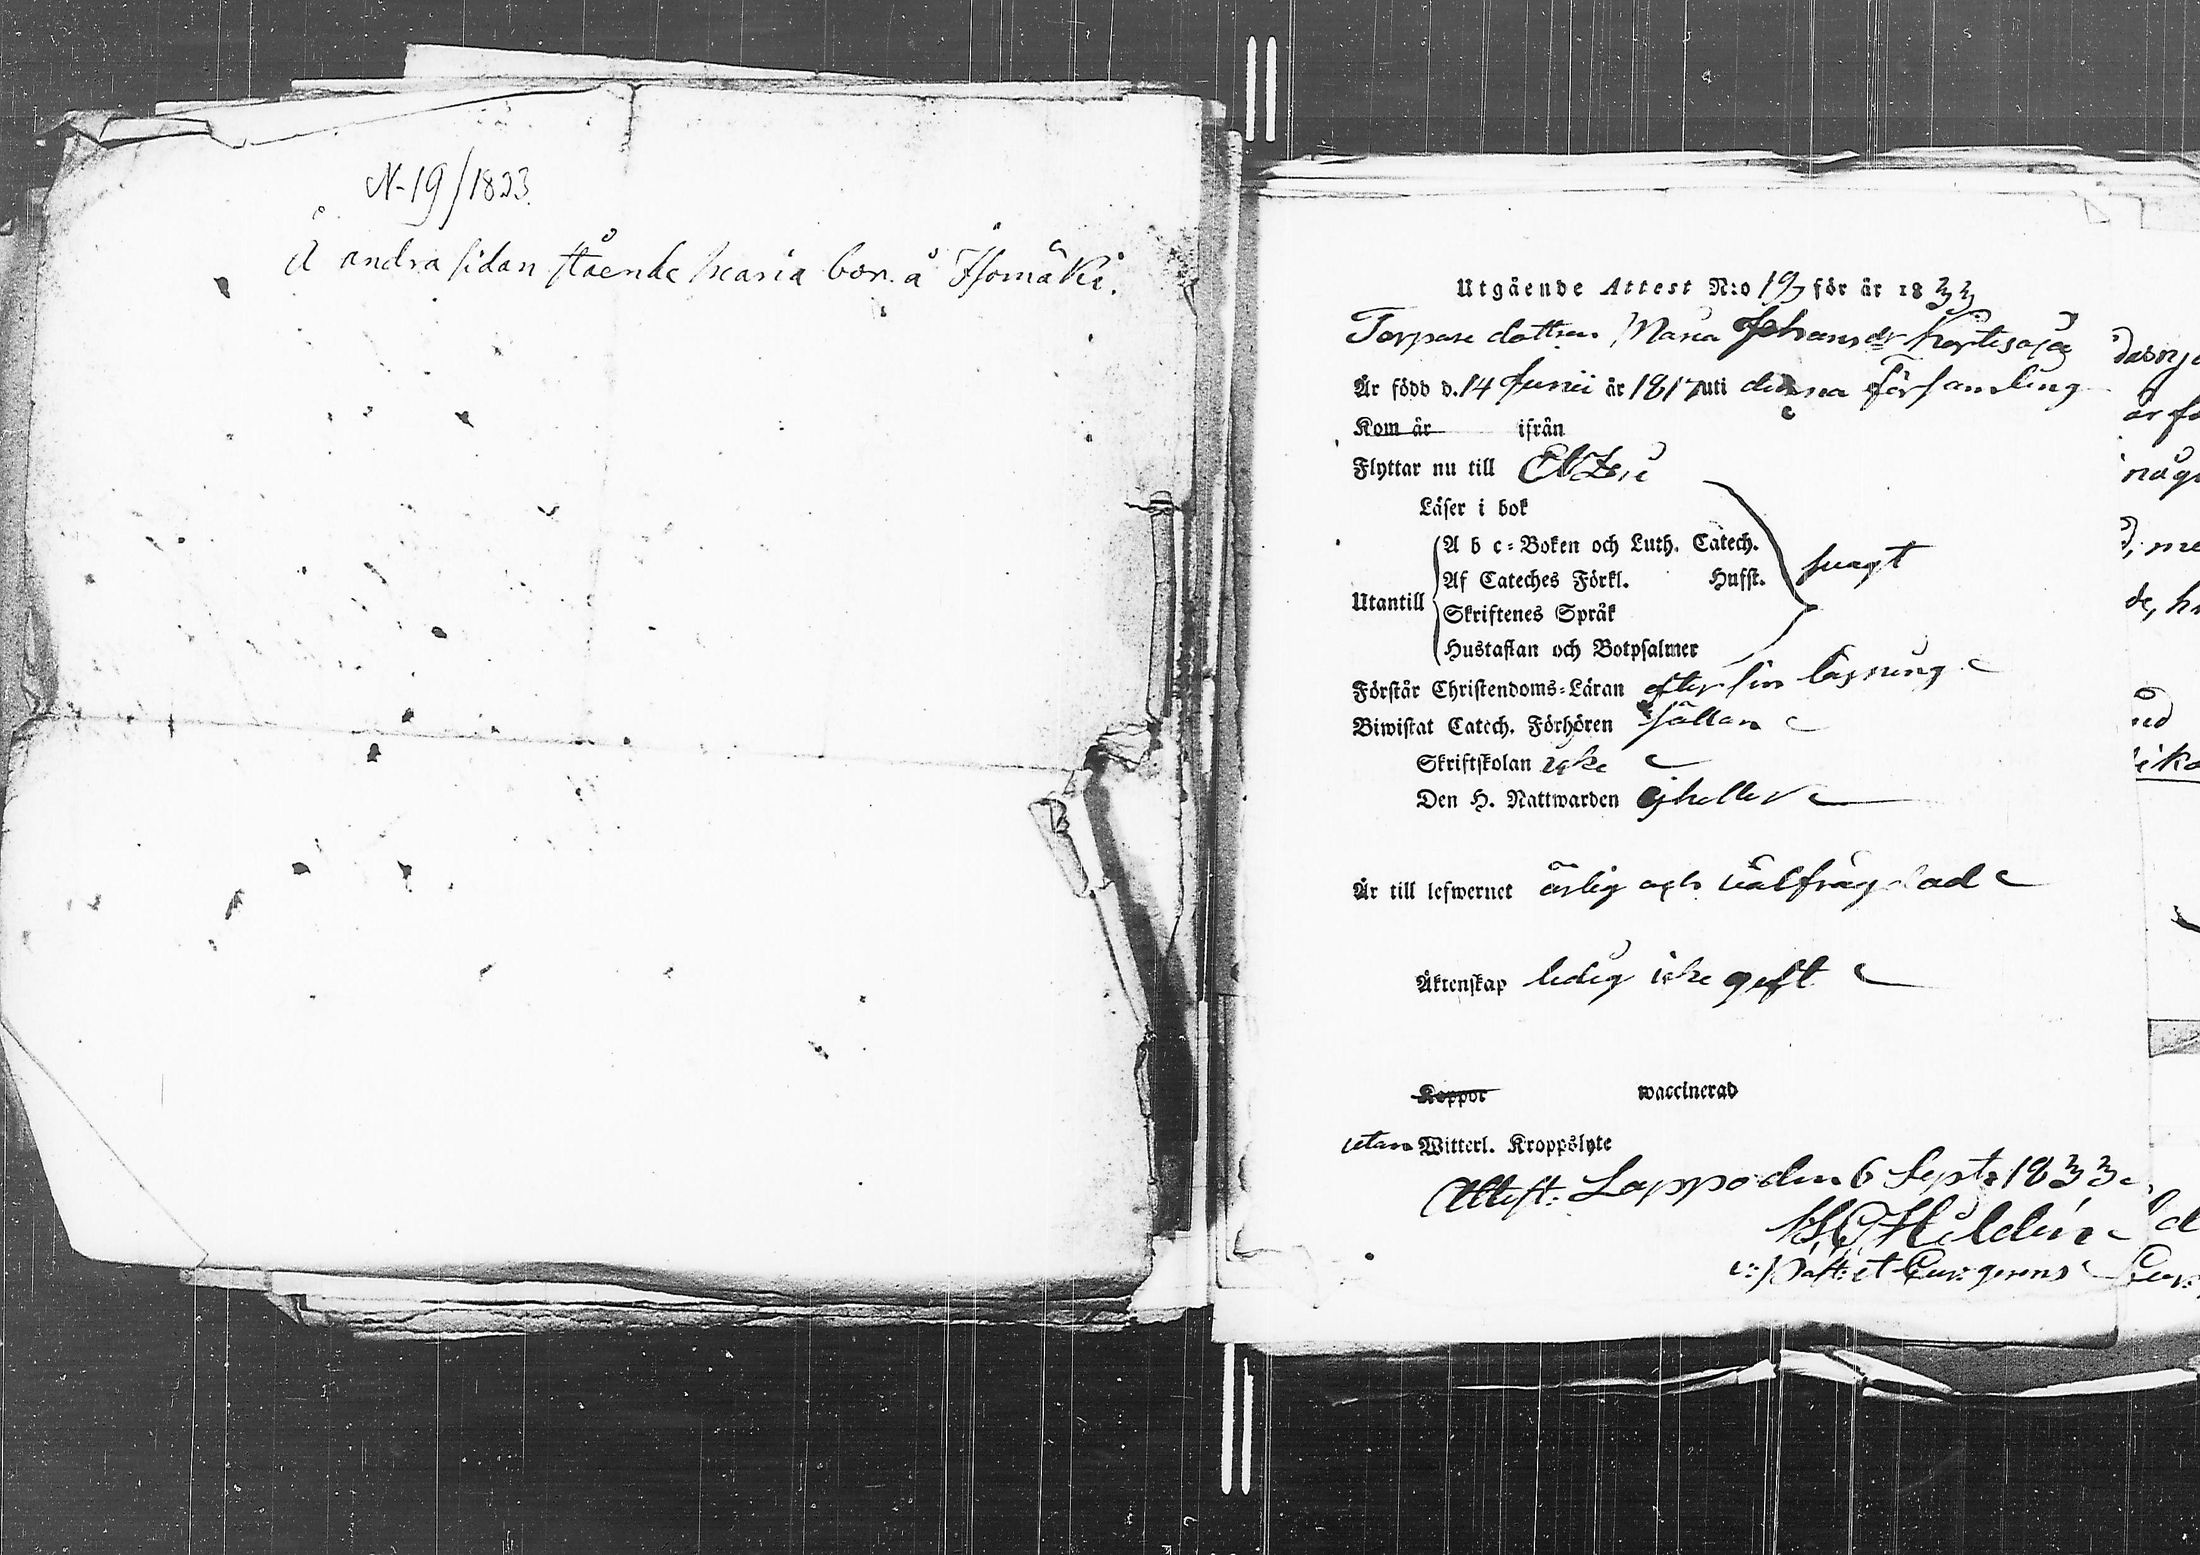 N-19/1823.
Å andra sidan stående Maria bor å Isomäki.
Utgående Attest N:o 19 för år 1833
Torpare dottren Maria Johansdr Kortesoja
Är född d. 14 Junii år 1817 uti denna församling
Kom år ifrån
Flyttar nu till
Läser i bok
A b c-Boken och Luth. Catech.
Af Cateches Förkl. Husst. svagt
Utantill
Skriftenes Språk
Hustaflan och Botpsalmer
Förstår Christendoms-Läran efter sin läsning
Biwistat Catech. Förhören sällan
Skriftskolan icke
Den H. Nattwarden ej heller
Är till lefwernet ärlig och välfrägdad
Äktenskap ledig icke gift
Koppor waccinerad
utan Witterl. Kroppslyte
Attest. Lappo den 6 Sept. 1833
Hildén
v: Past: et Cur: gerens